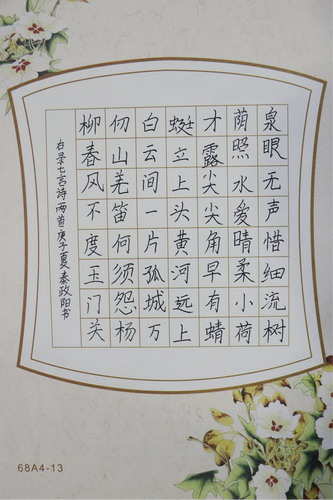 泉眼无声惜细流树
荫照水爱晴柔小荷
才露尖尖角早有蜻
蜓立上头黄河远上
白云间一片孤城万
仞山羌笛何须怨杨
柳春风不度玉门关
右录七言诗两首庚子夏秦政阳书
68A4-13